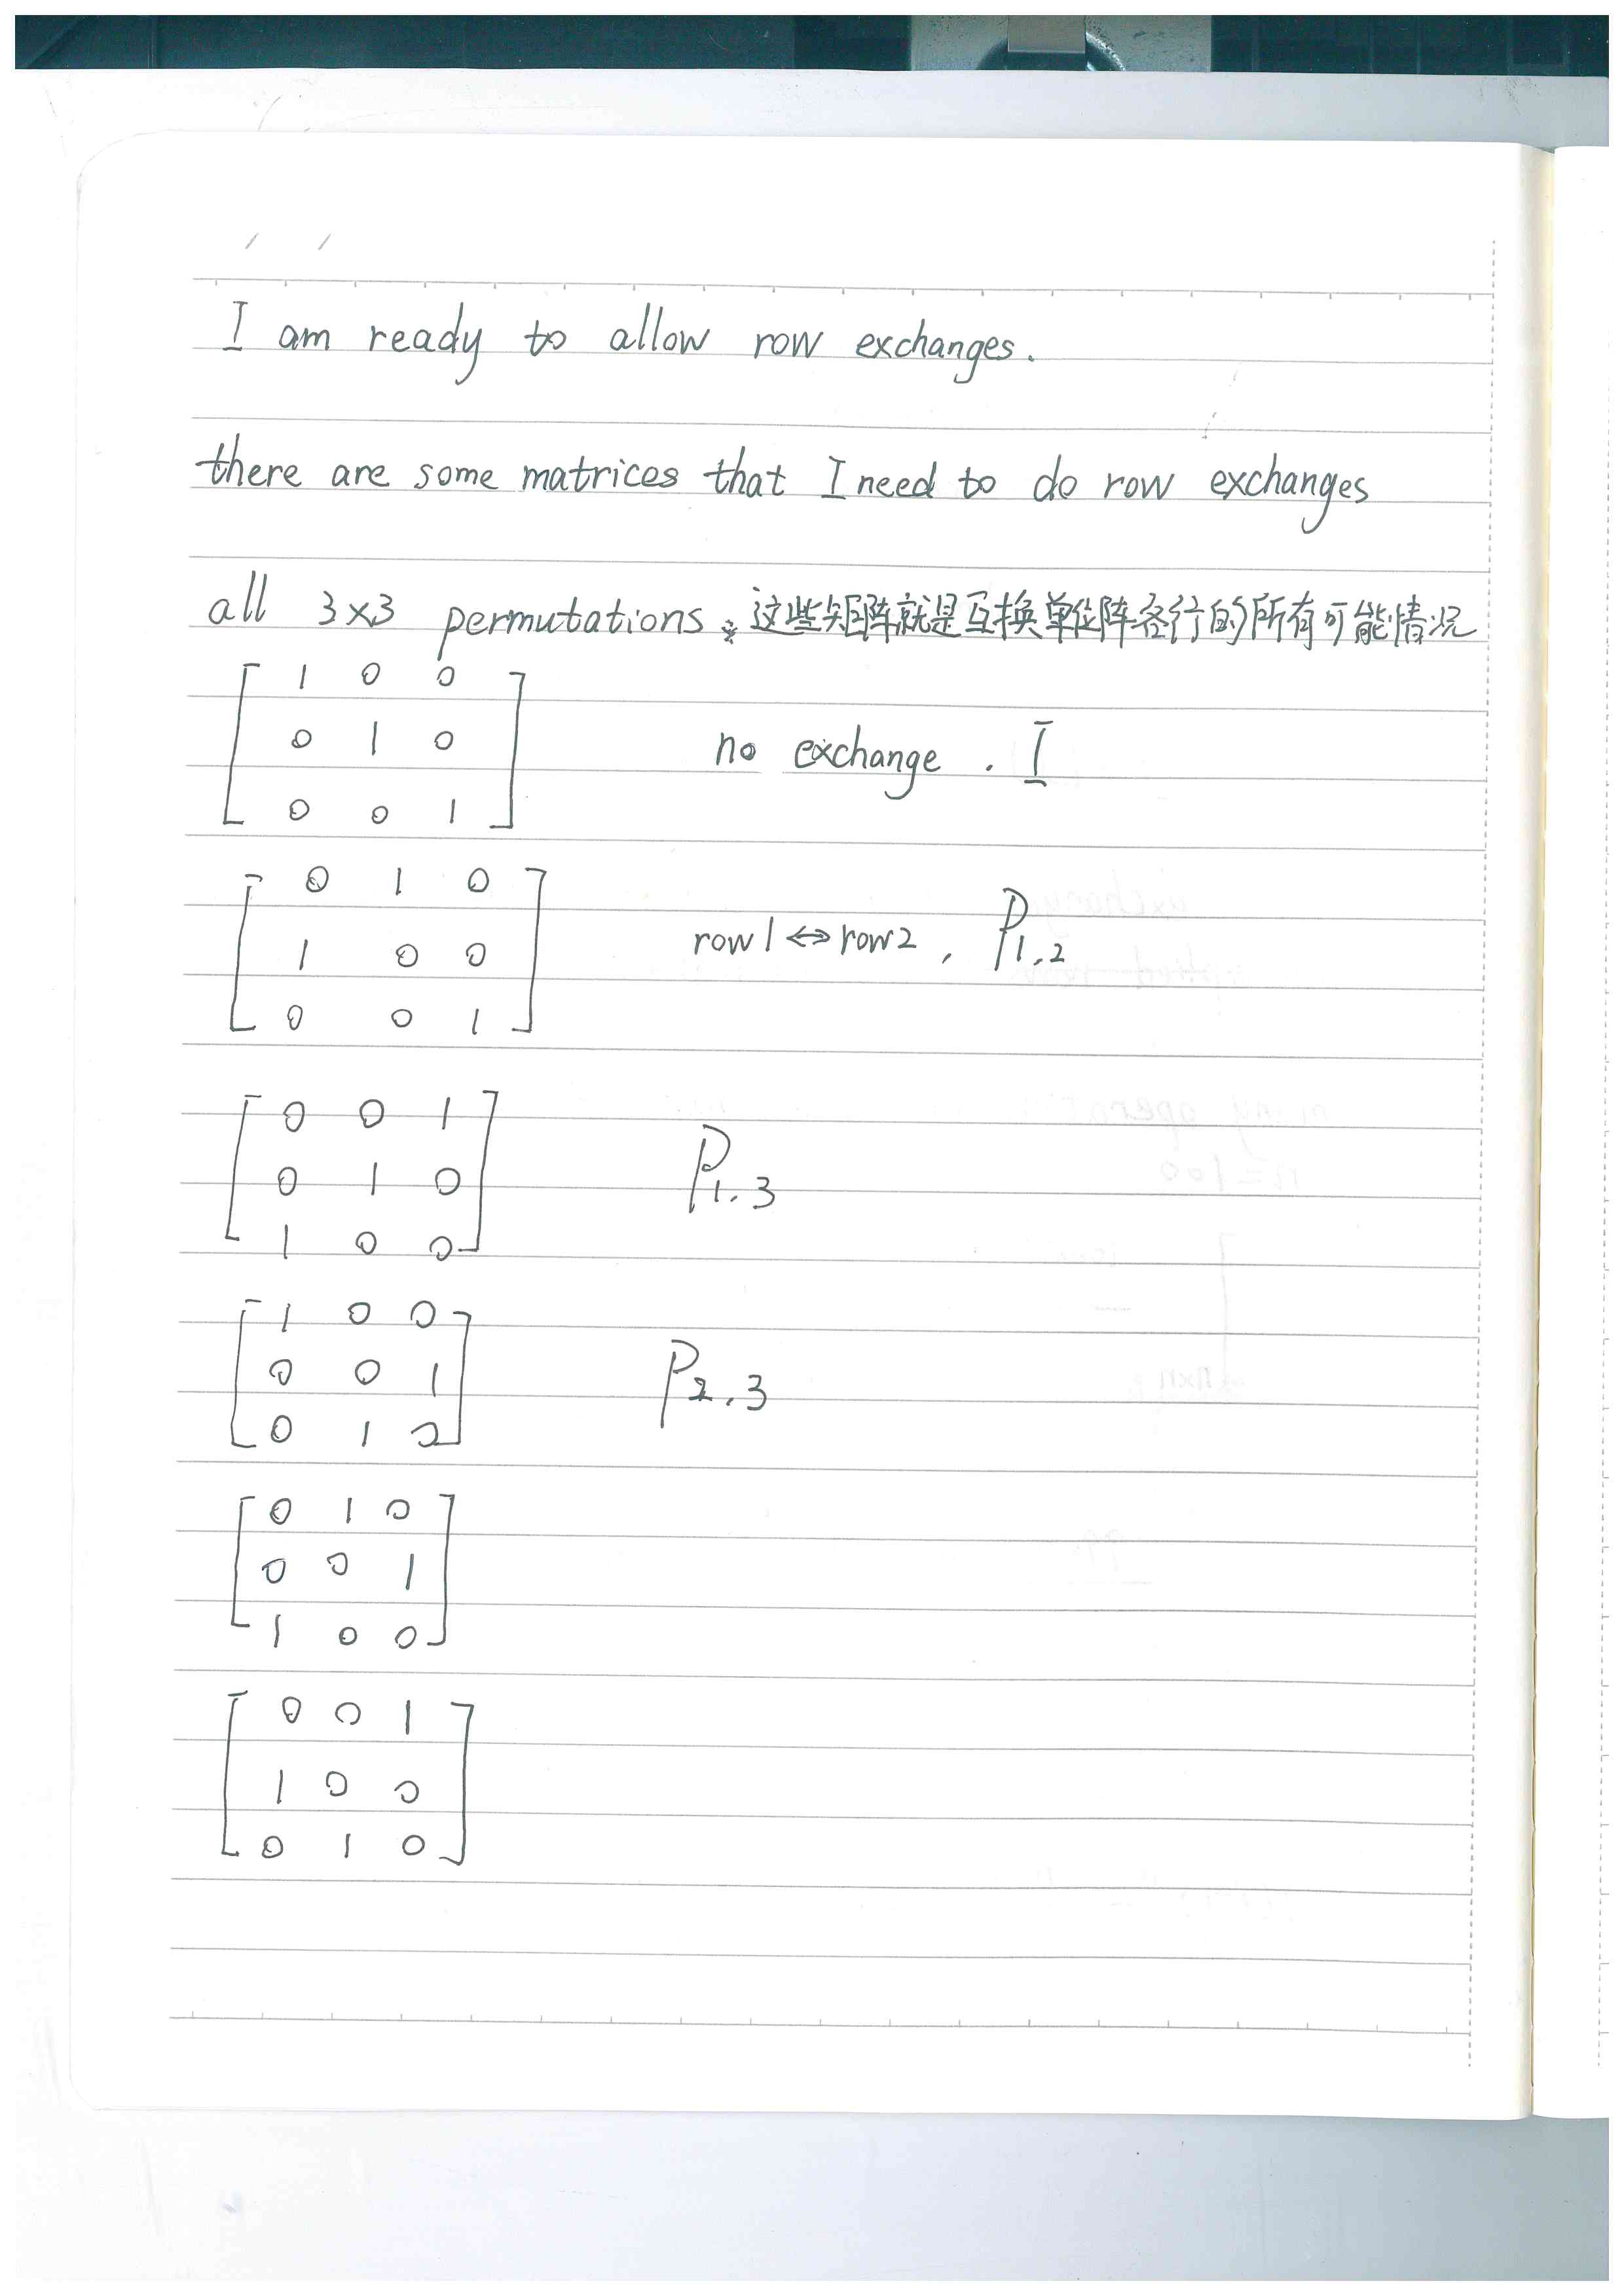 I am ready to allow row exchanges.
there are some matrices that I need to do row exchanges
all 3×3 permutations. 这些矩阵就是互换单位阵各行的所有可能情况
1 0 0
0 1 0 no exchange. I
0 0 1
0 1 0
1 0 0 row1⇔row2, P1,2
0 0 1
0 0 1
0 1 0 P1,3
1 0 0
1 0 0
0 0 1 P2,3
0 1 0
0 1 0
0 0 1
1 0 0
0 0 1
1 0 0
0 1 0